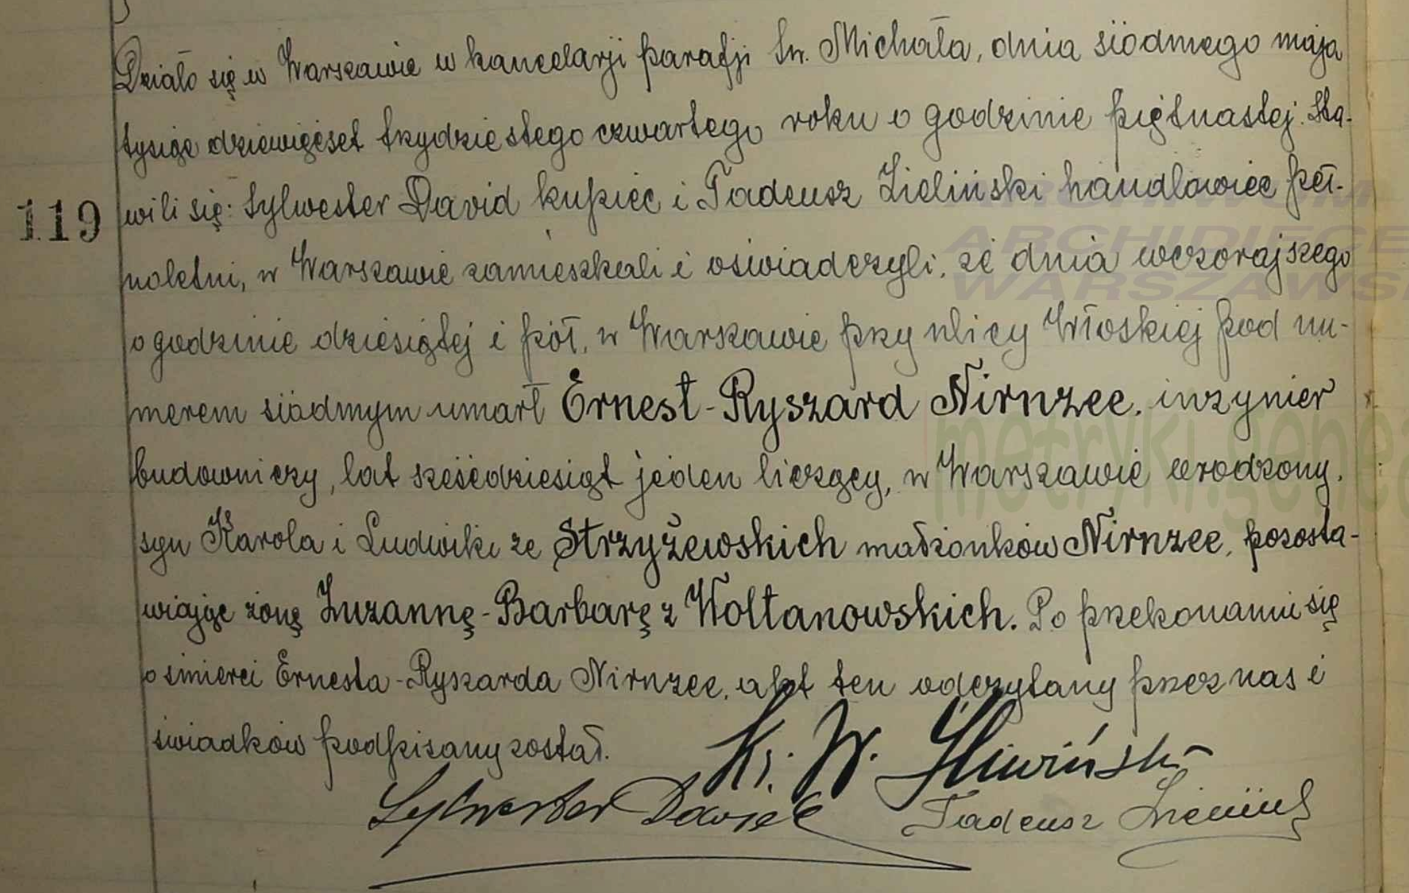 Działo się w Warszawie w kancelarji parafji Św. Michała, dnia siódmego maja
tysiąc dziewięćset trzydziestego czwartego roku o godzinie piętnastej. Sta-
119 wili się: Sylwester David kupiec i Tadeusz Zieliński handlowiec peł-
noletni, w Warszawie zamieszkali i oświadczyli, że dnia wczorajszego
o godzinie dziesiątej i pół, w Warszawie przy ulicy Włoskiej pod nu-
merem siódmym umarł Ernest-Ryszard Nirnzee, inżynier
budowniczy, lat sześćdziesiąt jeden liczący, w Warszawie urodzony,
syn Karola i Ludwiki ze Strzyżewskich małżonków Nirnzee, pozosta-
wiając żonę Zuzannę-Barbarę z Woltanowskich. Po przekonaniu się
o śmierci Ernesta-Ryszarda Nirnzee, akt ten odczytany przez nas i
świadków podpisany został.
Ks. W. Śliwiński
Sylwester David Tadeusz Zieliński
ARCHIDIECE
WARSZAWS
metryki.genea